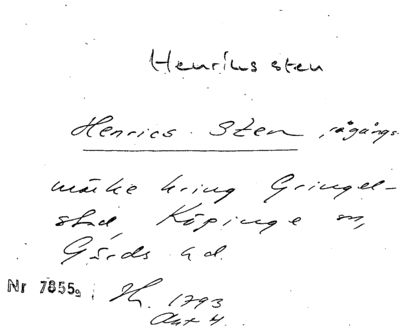 Henriks sten
Henrics Sten, rågångs-
märke kring Gringel-
stad, Köpinge sn,
Gärds hd.
Nr 7855
1793
Akt 4